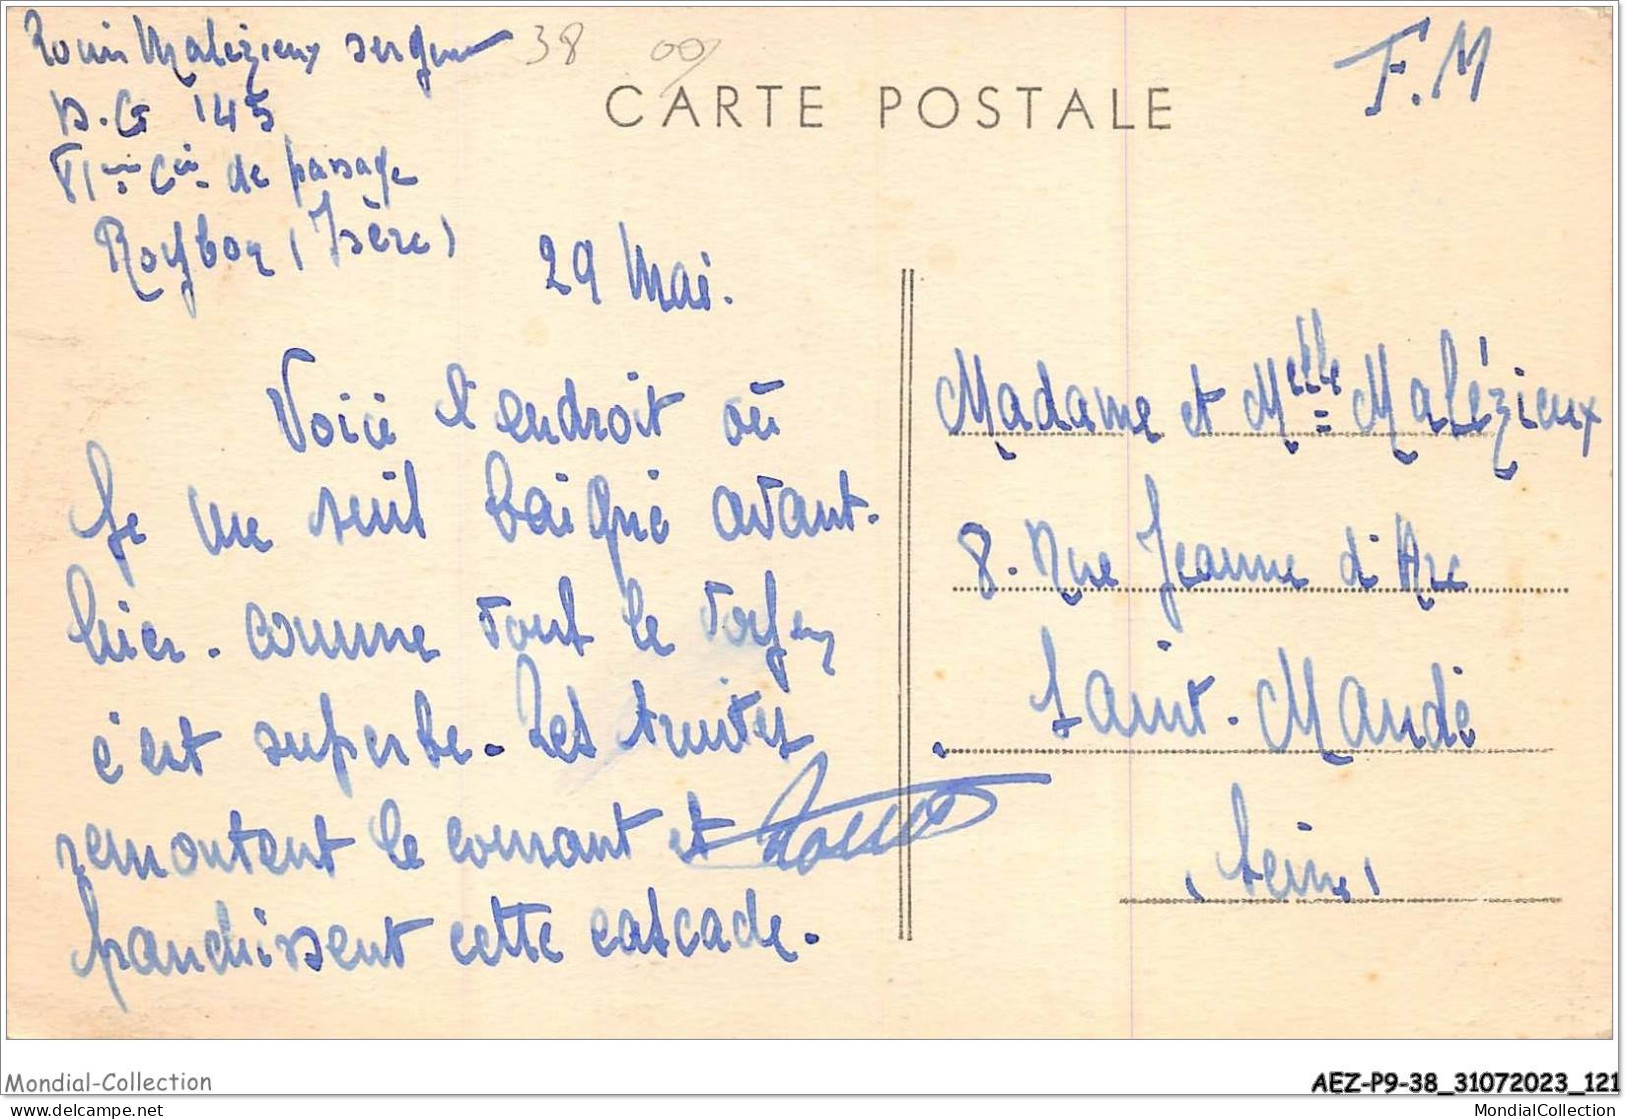 Louis Malézieux sergent
D.G 145
VIème Cie de passage
Roybon (Isère)
38
CARTE POSTALE
F.M
29 Mai.
Voici l'endroit où
je me suis baigné avant-
hier. comme tout le
c'est superbe. Les truites
remontent le courant et
franchissent cette cascade.
Louis
Madame et Melle Malézieux
8. Rue Jeanne d'Arc
Saint-Mandé
(Seine)
Mondial-Collection
AEZ-P9-38_31072023_121
www.delcampe.net
MondialCollection